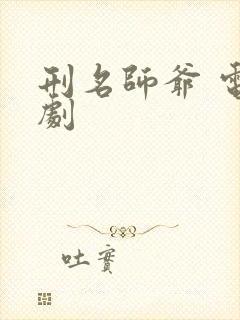 刑名師爺 電
劇
吐實